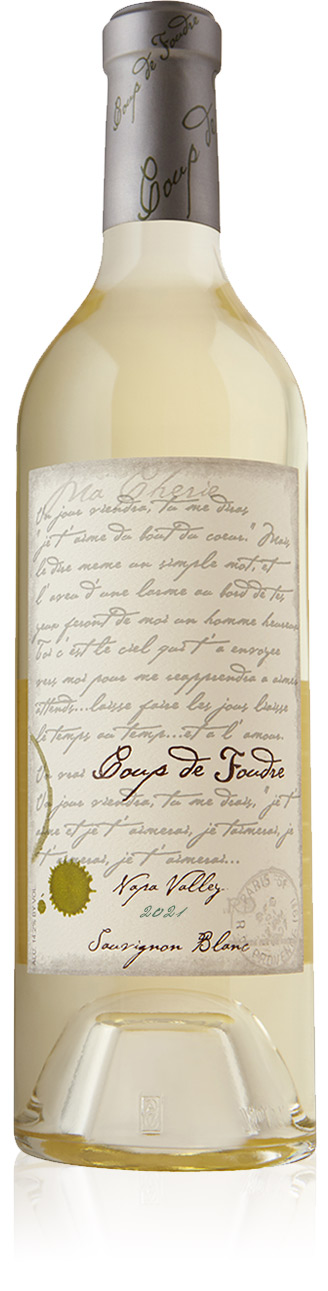 Coup de Foudre
Coup de
Ma Cherie
Un jour viendra, tu me diras
"je t'aime du bout du coeur." Mais
le dire meme un simple mot, et
l'aveu d'une larme au bord de tes
yeux feront de moi un homme heureux
Toi c'est le ciel qui t'a envoyee
vers moi pour me reapprendre a aimer
attends...laisse faire les jours liaisse
le temps au temp...et a l'amour.
Un vrai Coup de Foudre
Un jour viendra, tu me drais, "je t'
aime et je t'aimerai, je t'aimerai, je
t'aimerai, je t'aimerai...
Napa Valley
2021
Sauvignon Blanc
ALC. 14.2% BY VOL.
PARIS